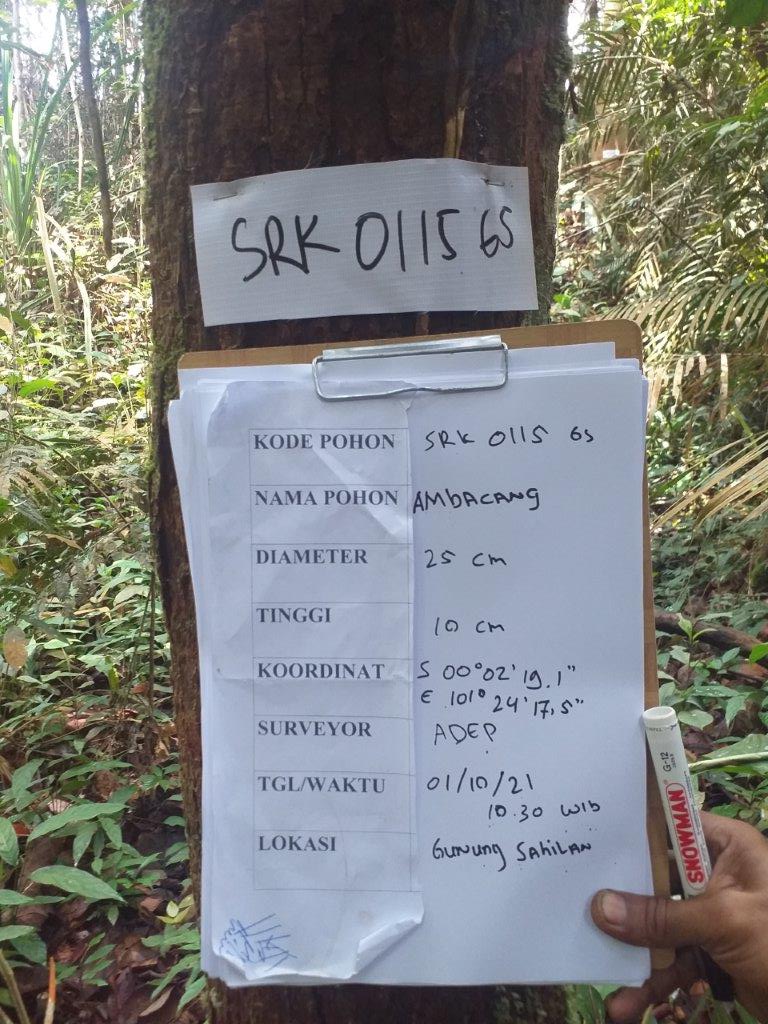 SRK 0115 GS
KODE POHON SRK 0115 GS
NAMA POHON AMBACANG
DIAMETER 25 cm
TINGGI 10 cm
KOORDINAT S 00°02'19.1"
E 101° 24'17,5"
SURVEYOR ADEP
TGL/WAKTU 01/10/21
10.30 WIB
LOKASI GUNUNG SAHILAN
SNOWMAN G-12